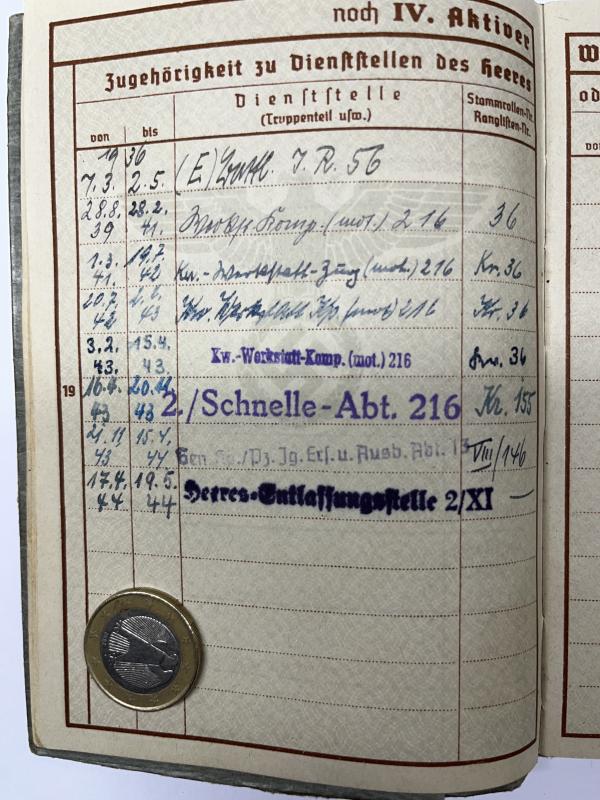 noch IV. Aktiver
Zugehörigkeit zu Dienststellen des Heeres
von
bis
Dienststelle
(Truppenteil usw.)
Stammrollen-Nr.
Ranglisten-Nr.
19 36
7.3. 2.5. (E) J. R. 56
28.8. 28.2.
39 41. Werkst. Komp. (mot.) 216 36
1.3. 19.7.
41. 42 Kw.-Werkstatt-Zug (mot.) 216 Kr. 36
20.7.
42 43 Kw. Werkstatt Kp. (mot) 216 Kr. 36
3.2. 15.4.
43. 43. Kw.-Werkstatt-Komp. (mot.) 216 36
19
16.4. 20.11.
43 43 2./Schnelle-Abt. 216 Kr. 155
21.11 15.4.
43 44 Gen. Kp./Pz. Jg. Ers. u. Ausb. Abt. 13 VIII/146
17.4. 19.5.
44 44 Heeres-Entlassungsstelle 2/XI —
W
od
vo